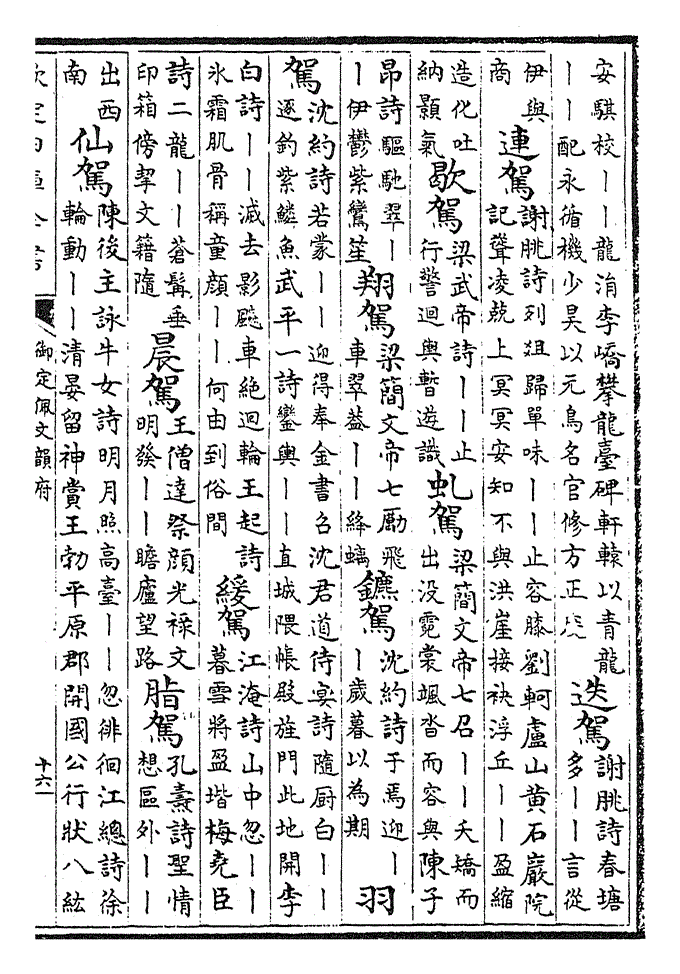 安騏校丨丨龍涓李嶠攀龍臺碑軒轅以青龍
丨丨配永循機少昊以元鳥名官修方正
迭駕
謝朓詩春塘
多丨丨言從
伊與
商
連駕
謝朓詩列俎歸單味丨丨止容膝劉軻廬山黄石巖院
記聳凌兢上冥冥安知不與洪崖接袂浮丘丨丨盈縮
造化吐
納顥氣
歇駕
梁武帝詩丨丨止
行警迴輿暫遊識
虬駕
梁簡文帝七召丨丨夭矯而
出没霓裳颯沓而容與陳子
昂詩驅馳翠丨
丨伊鬱紫鸞笙
翔駕
梁簡文帝七勵飛
車翠葢丨丨絳螭
鑣駕
沈約詩于焉迎丨
丨歲暮以為期
羽
駕
沈約詩若蒙丨丨迎得奉金書召沈君道侍宴詩隨厨白丨丨
逐釣紫鱗魚武平一詩鑾輿丨丨直城隈帳殿旌門此地開李
白詩丨丨滅去影飈車絶迴輪王起詩
氷霜肌骨稱童顔丨丨何由到俗間
緩駕
江淹詩山中忽丨丨
暮雪將盈堦梅堯臣
詩二龍丨丨蒼髯垂
印箱傍挈文籍隨
晨駕
王僧達祭顔光禄文
明發丨丨瞻廬望路
脂駕
孔燾詩聖情
想區外丨丨
出西
南
仙駕
陳後主詠牛女詩明月照高臺丨丨忽徘徊江總詩徐
輪動丨丨清晏留神賞王勃平原郡開國公行狀八紘
欽定四庫全書
御定佩文韻府
十六